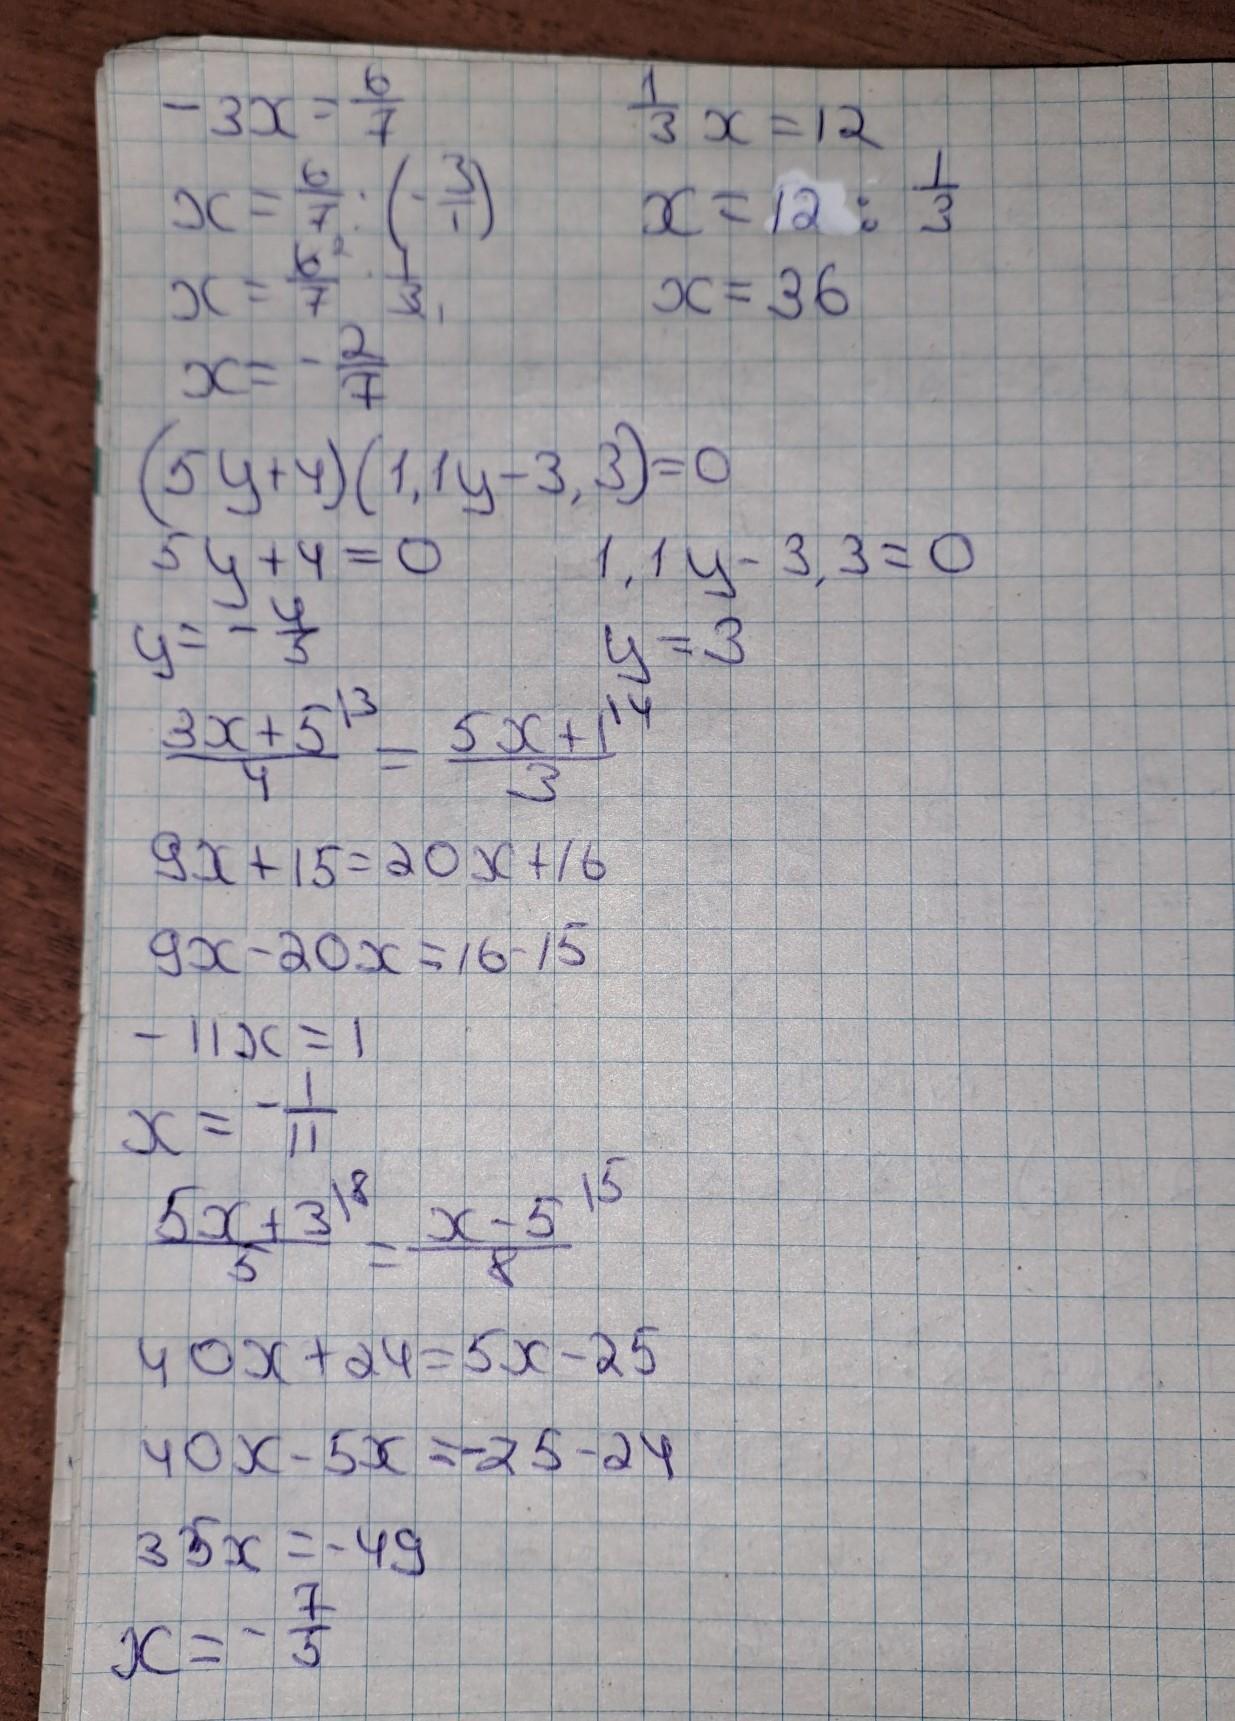 -3x = 6/7
x = 6/7 : (-3/1)
x = 6²/7 · 1/3₁
x = -2/7
1/3 x = 12
x = 12 : 1/3
x = 36
(5y+4)(1,1y-3,3)=0
5y+4=0    1,1y-3,3=0
y = -4/5    y = 3
(3x+5)/4 \3 = (5x+1)/3 \4
9x+15=20x+16
9x-20x=16-15
-11x=1
x = -1/11
(5x+3)/5 \8 = (x-5)/8 \5
40x+24=5x-25
40x-5x=-25-24
35x=-49
x = -7/5